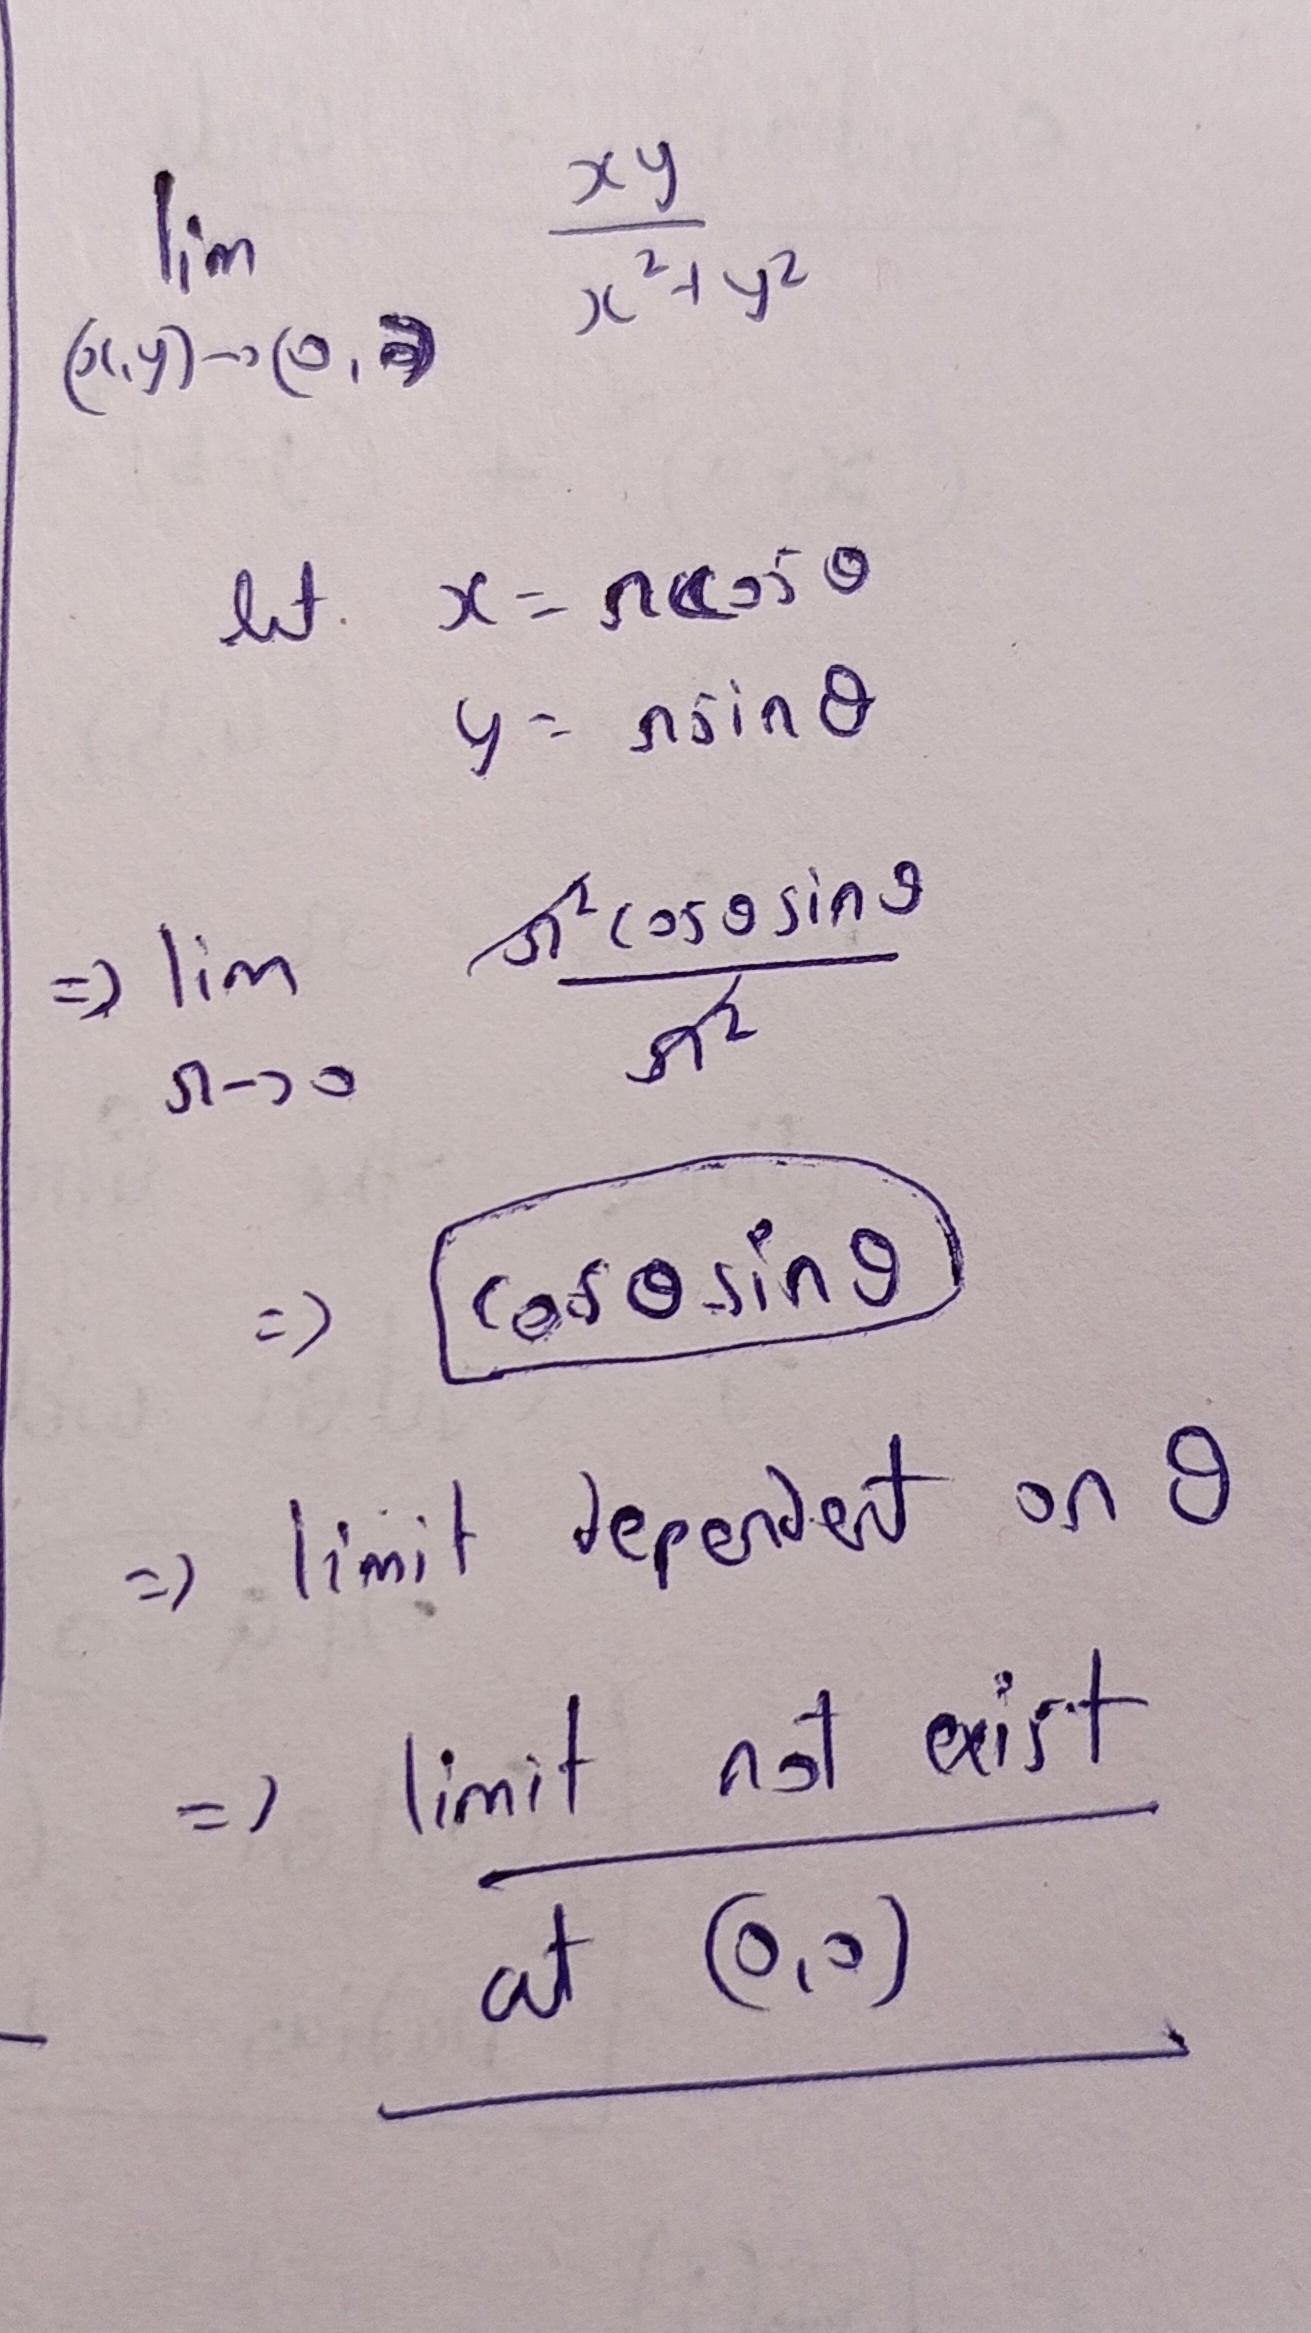 lim xy/(x²+y²)
(x,y)→(0,0)
let. x = r cosθ
y = r sinθ
⇒ lim r² cosθ sinθ / r²
r→0
⇒ cosθ sinθ
⇒ limit dependent on θ
⇒ limit not exist
at (0,0)